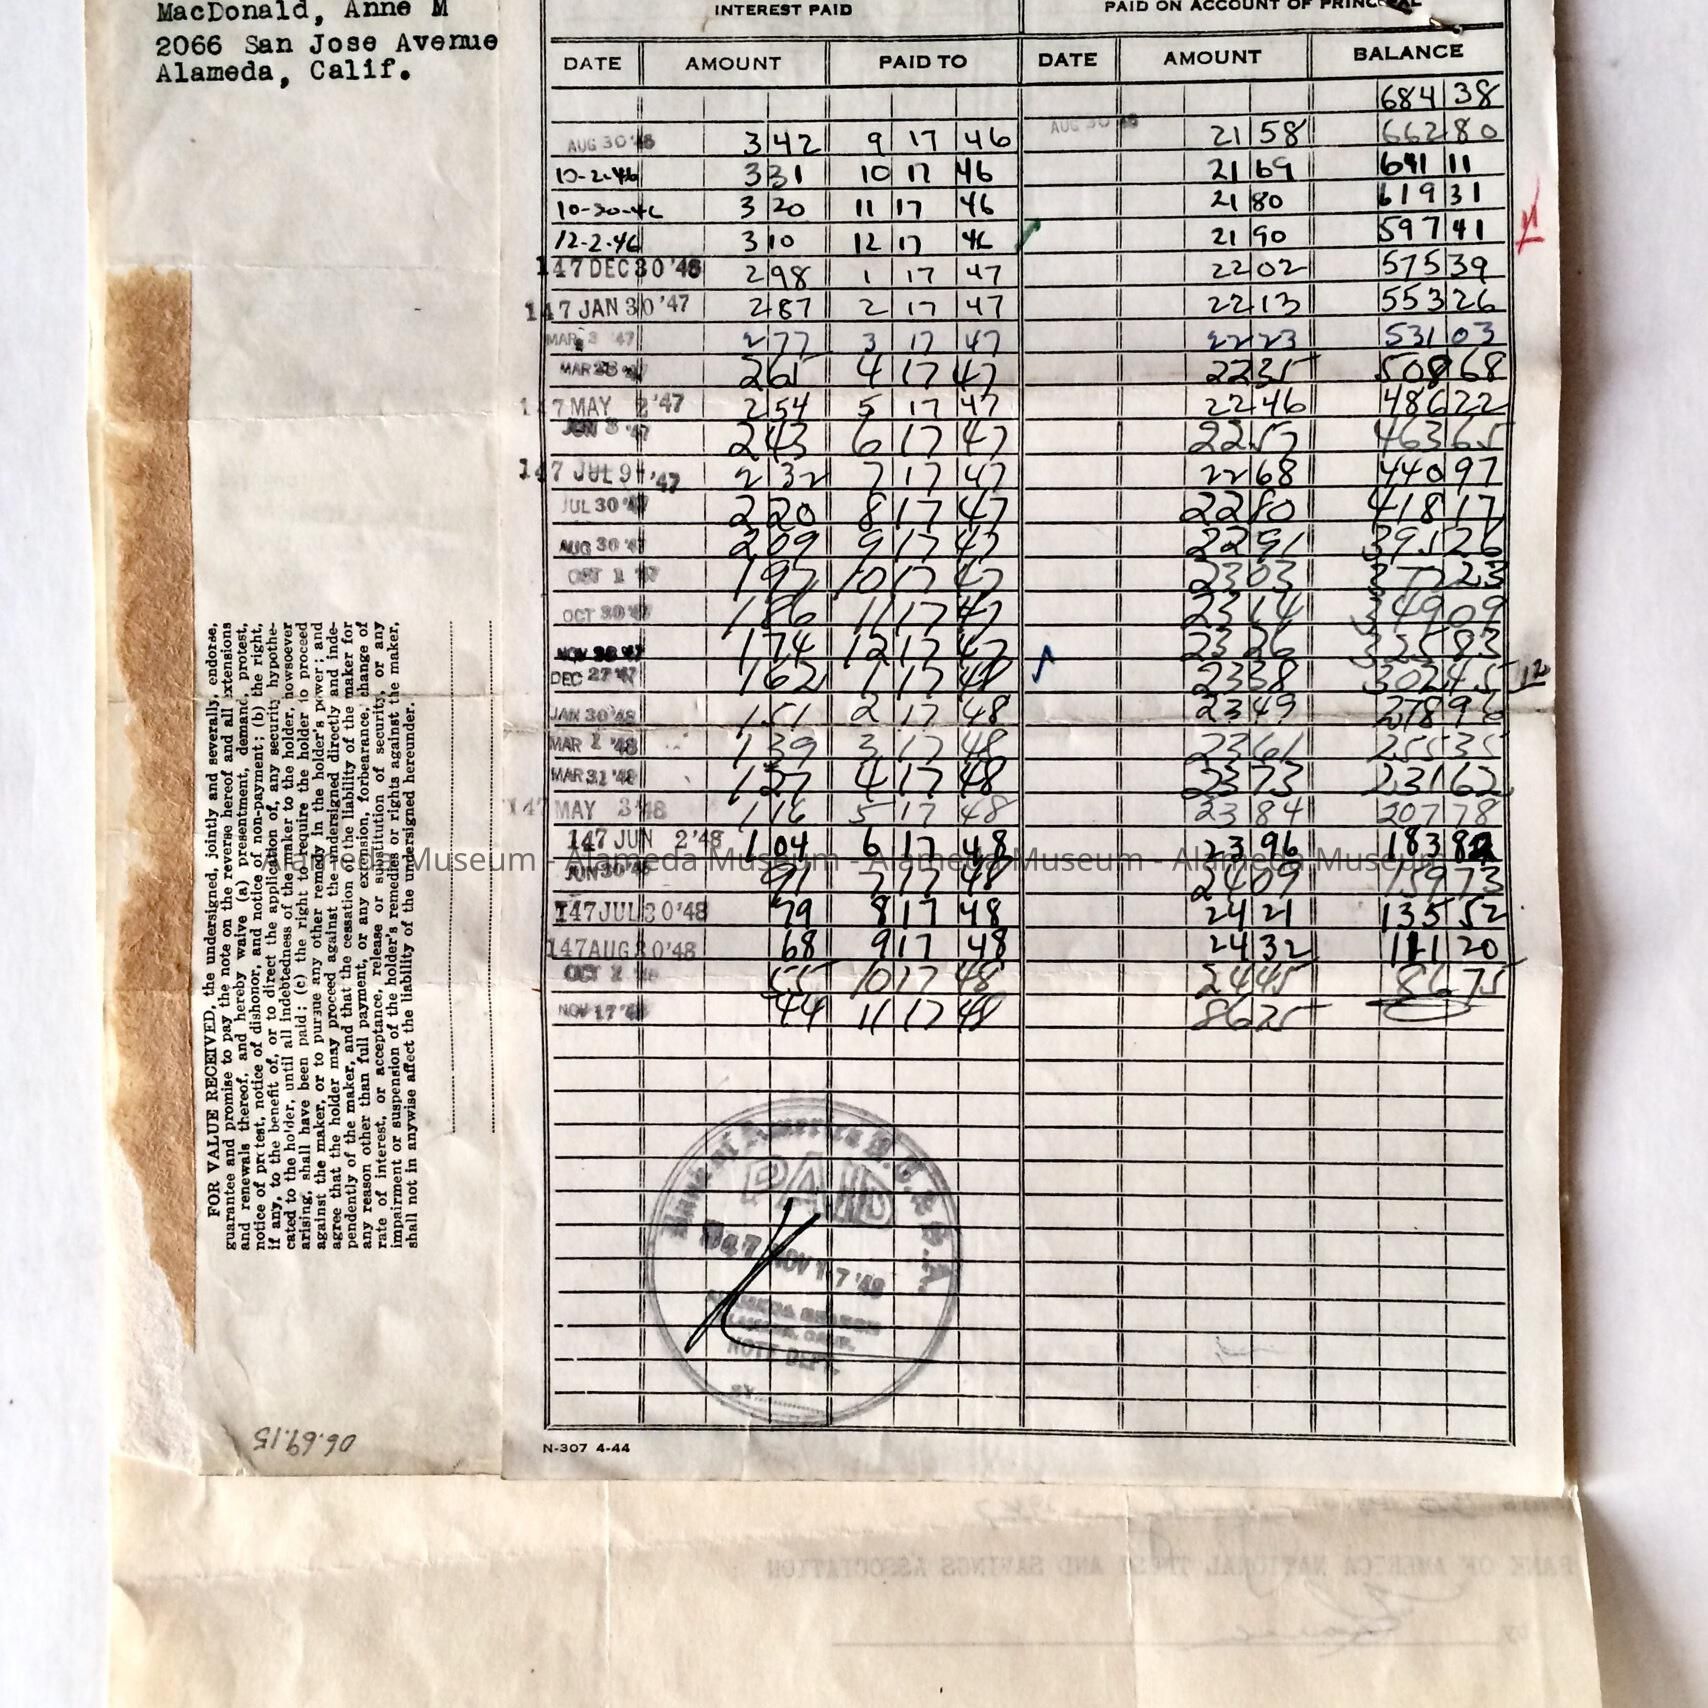 MacDonald, Anne M
2066 San Jose Avenue
Alameda, Calif.
INTEREST PAID PAID ON ACCOUNT OF PRINCIPAL
DATE AMOUNT PAID TO DATE AMOUNT BALANCE
684 38
AUG 30 '46 3 42 9 17 46 AUG 30 '46 21 58 662 80
10-2-46 3 31 10 17 46 21 69 641 11
10-30-46 3 20 11 17 46 21 80 619 31
12-2-46 3 10 12 17 46 21 90 597 41
147 DEC 30 '46 2 98 1 17 47 22 02 575 39
147 JAN 30 '47 2 87 2 17 47 22 13 553 26
MAR 3 '47 2 77 3 17 47 22 23 531 03
MAR 28 '47 2 65 4 17 47 22 35 508 68
147 MAY 2 '47 2 54 5 17 47 22 46 486 22
JUN 3 '47 2 43 6 17 47 22 57 463 65
147 JUL 9 '47 2 32 7 17 47 22 68 440 97
JUL 30 '47 2 20 8 17 47 22 80 418 17
AUG 30 '47 2 09 9 17 47 22 91 395 26
OCT 1 '47 1 97 10 17 47 23 03 372 23
OCT 30 '47 1 86 11 17 47 23 14 349 09
NOV '47 1 74 12 17 47 23 26 325 83
DEC 27 '47 1 62 1 17 48 23 38 302 45
JAN 30 '48 1 51 2 17 48 23 49 278 96
MAR 1 '48 1 39 3 17 48 23 61 255 35
MAR 31 '48 1 27 4 17 48 23 73 231 62
147 MAY 3 '48 1 16 5 17 48 23 84 207 78
147 JUN 2 '48 1 04 6 17 48 23 96 183 82
Alameda Museum - Alameda Museum - Alameda Museum - Alameda Museum
JUN 30 '48 91 7 17 48 24 09 159 73
147 JUL 30 '48 79 8 17 48 24 21 135 52
147 AUG 30 '48 68 9 17 48 24 32 111 20
OCT 1 '48 55 10 17 48 24 45 86 75
NOV 17 '48 44 11 17 48 86 75
FOR VALUE RECEIVED, the undersigned, jointly and severally, endorse,
guarantee and promise to pay the note on the reverse hereof and all extensions
and renewals thereof, and hereby waive (a) presentment, demand, protest,
notice of protest, notice of dishonor, and notice of non-payment; (b) the right,
if any, to the benefit of, or to direct the application of, any security hypothe-
cated to the holder, until all indebtedness of the maker to the holder, howsoever
arising, shall have been paid; (c) the right to require the holder to proceed
against the maker, or to pursue any other remedy in the holder's power; and
agree that the holder may proceed against the undersigned directly and inde-
pendently of the maker, and that the cessation of the liability of the maker for
any reason other than full payment, or any extension, forbearance, change of
rate of interest, or acceptance, release or substitution of security, or any
impairment or suspension of the holder's remedies or rights against the maker,
shall not in anywise affect the liability of the undersigned hereunder.
Bank of America N.T. & S.A.
PAID
147 NOV 17 '48
ALAMEDA BRANCH
ALAMEDA, CALIF.
NOTE DEPT.
By
06.69.15
N-307 4-44
BANK OF AMERICA NATIONAL TRUST AND SAVINGS ASSOCIATION
by